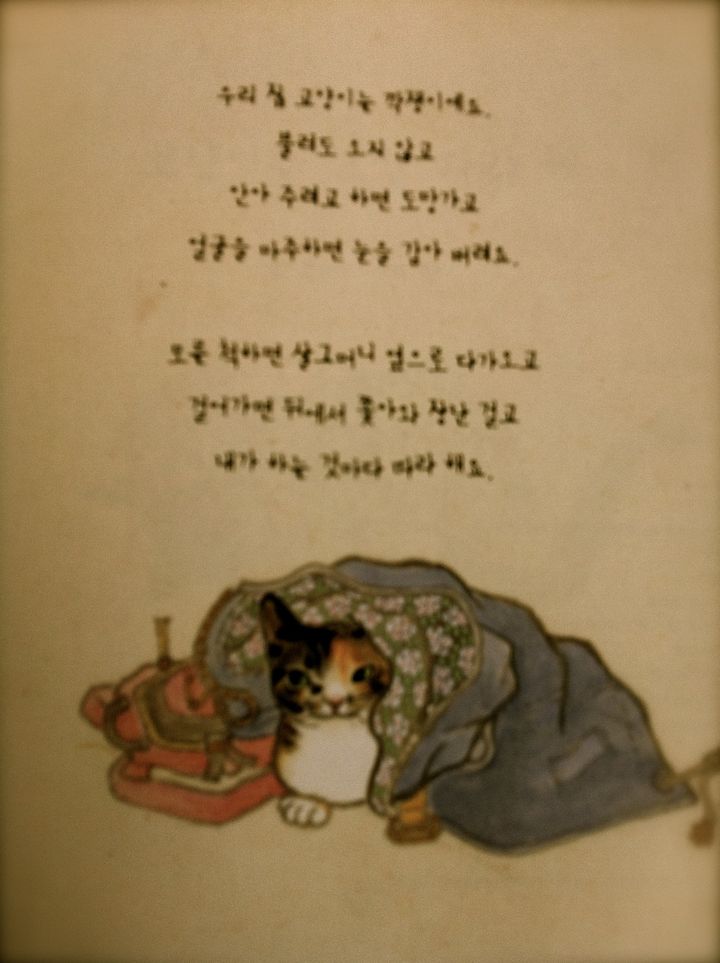 우리 집 고양이는 깍쟁이예요.
불러도 오지 않고
안아 주려고 하면 도망가고
얼굴을 마주하면 눈을 감아 버려요.
모른 척하면 살그머니 옆으로 다가오고
걸어가면 뒤에서 쫓아와 장난 걸고
내가 하는 것마다 따라 해요.